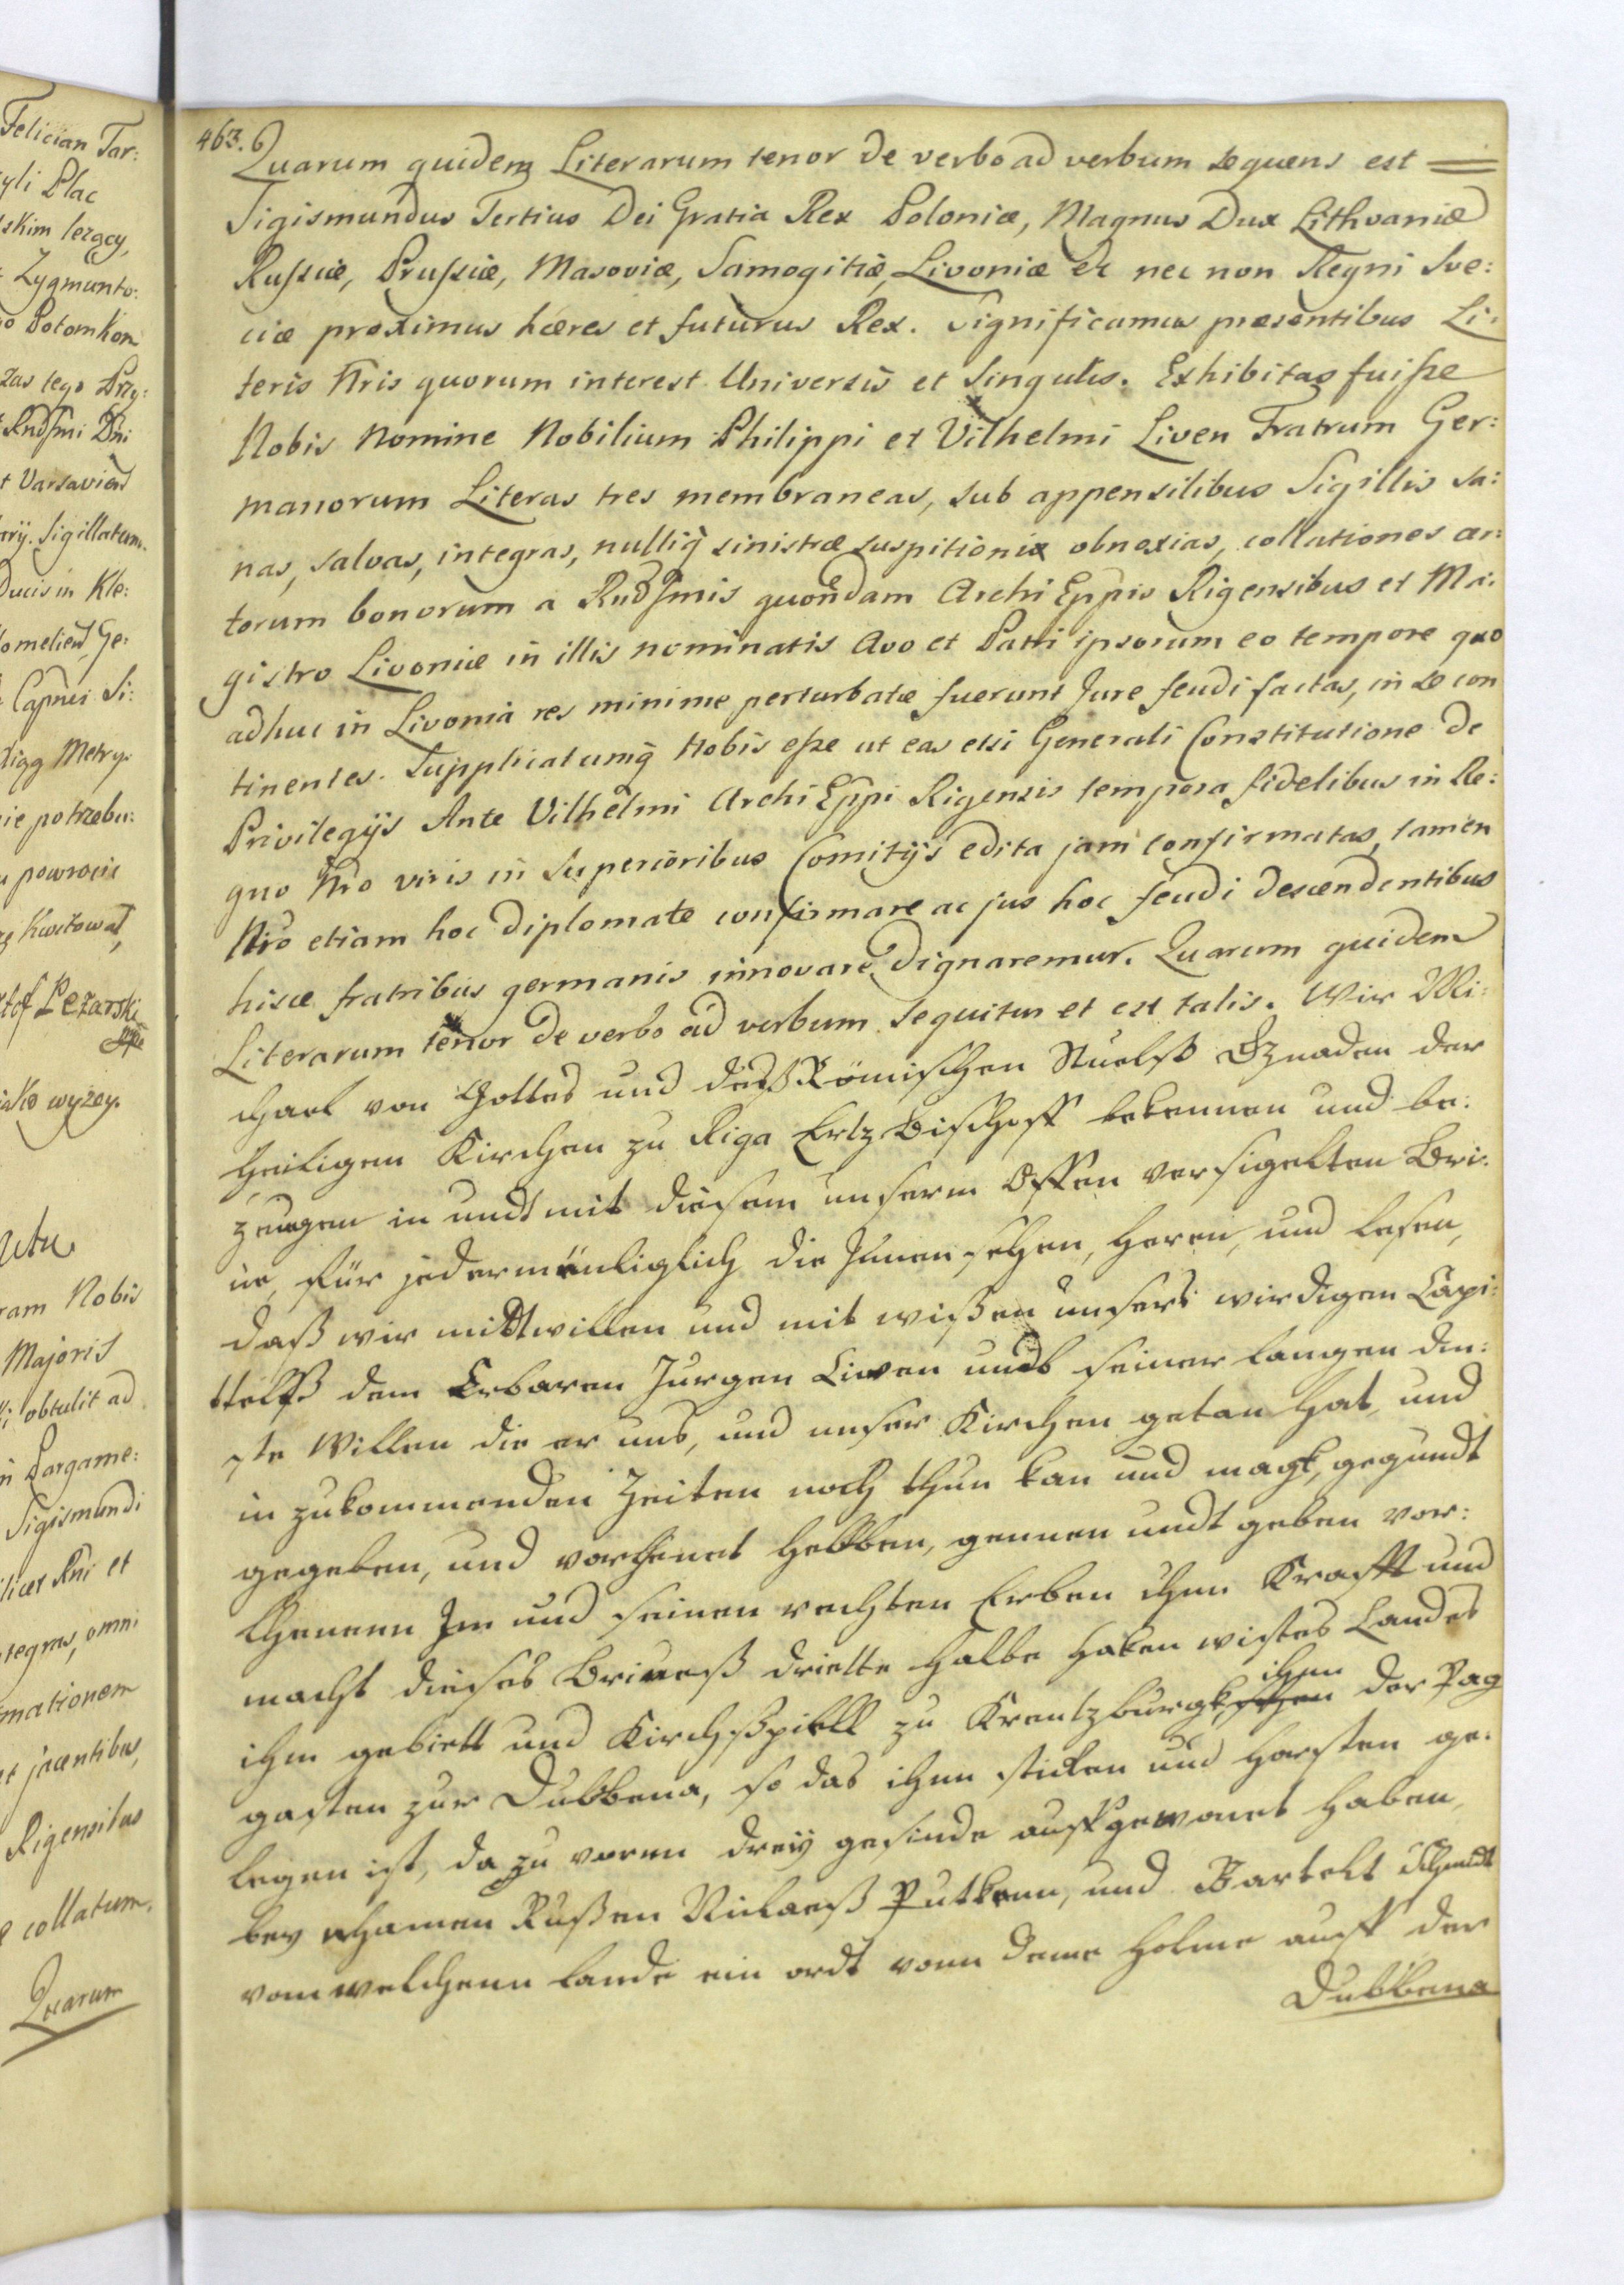 Felician Tar:
yli Plac
skim lezący,
Zygmunto:
o Potomkom
zas tego Przy:
Rndssmi Dni
t Varsavien
arij. Sigillatum.
Ducis in Kle:
omelien, Ge:
Capnei Si:
digg Metry:
ie potrzebu:
powrocic
Kwitował,
stof Pezarski
iako wyzey.
ram Nobis
Majoris
obtulit ad
in Pargame:
Sigismundi
licet Rni et
ntegras, omni
mationem
et jacentibus,
Rigensibus
e collatum.
Quarum
463. Quarum quidem Literarum tenor de verbo ad verbum sequens est =
Sigismundus Tertius Dei Gratia Rex Poloniæ, Magnus Dux Lithvaniæ
Russiæ, Prussiæ, Masoviæ, Samogitiæ, Livoniæ &c nec non Regni Sve:
ciæ proximus hæres et futurus Rex. Significamus præsentibus Li:
teris Nris quorum interest Universis et Singulis. Exhibitas fuisse
Nobis Nomine Nobilium Philippi et Vilhelmi Liven Fratrum Ger:
manorum Literas tres membraneas, sub appensilibus Sigillis sa:
nas, salvas, integras, nulliq sinistræ suspitionix obnoxias, collationes ar:
torum bonorum a Rndssmis quondam Archi Eppis Rigensibus et Ma:
gistro Livoniæ in illis nominatis Avo et Patri ipsorum eo tempore quo
adhuc in Livonia res minime perturbatæ fuerunt Jure feudi factas, in se con
tinentes. Supplicatumq Nobis esse ut eas etsi Generali Constitutione de
Privilegijs Ante Vilhelmi Archi Eppi Rigensis tempora fidelibus in Re:
gno Nro viris in Superioribus Comitijs edita jam confirmatas, tamen
Nro etiam hoc diplomate confirmare ac jus hoc feudi descendentibus
hisce fratribus germanis innovare dignaremur. Quarum quidem
Literarum tenor de verbo ad verbum sequitur et est talis. Wir Mi:
chael von Gottes und deß Römischen Stuelß Gznaden der
Heiligem Kirchen zu Riga Ertz Bischoff bekennen und be:
zeugen in undt mit diesem unserm Offen versigelten Bri:
ue, für jedermänliglich die Ihnen sehen, heren, und lesen,
daß wir mitt willen und mit wißen unsers wirdigen Capi:
ttelß dem Erbaren Jurgen Liven umb seiner langen din:
ste Willen die er uns, und unser Kirchen getan hat, und
in zukommenden Zeiten noch thun kan und magk, gegundt
gegeben, und verlhenet hebben, gennen undt geben ver:
lhenenn Im und seinen rechten Erben ihm Krafft und
macht dieses Briueß drittte halbe haken wistes Landes
ihm gebiett und Kirchßpiell zu Kreutzburgk, ihnn der Pag
gasten zur Dubbena, so das ihnn sticken und horsten ge:
legen ist, da zu vornn dreÿ gesinde auff gewonet haben,
bey nhamen Rußen Niclaeß Putkenn, und Bartelt Schmidt
vom welchenn lande ein ordt vonn deme holme auff der
Dubbena